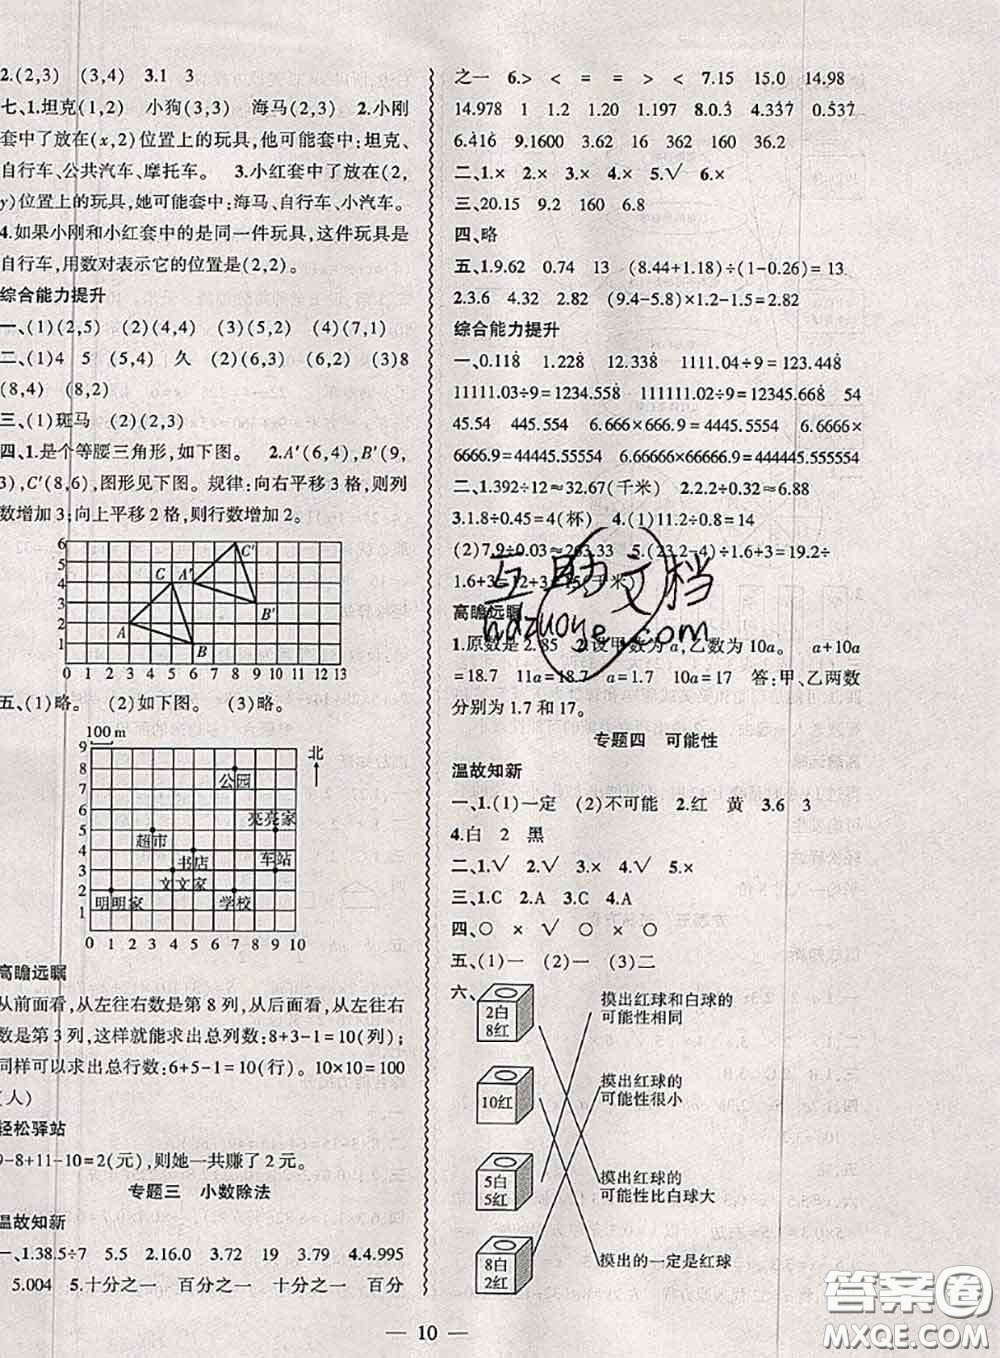 2.(2,3) (3,4) 3.1 3
七、1.坦克(1,2) 小狗(3,3) 海马(2,3) 2.小刚
套中了放在(x,2)位置上的玩具,他可能套中:坦克、
自行车、公共汽车、摩托车。 3.小红套中了放在(2,
y)位置上的玩具,她可能套中:海马、自行车、小汽车。
4.如果小刚和小红套中的是同一件玩具,这件玩具是
自行车,用数对表示它的位置是(2,2)。
综合能力提升
一、(1)(2,5) (2)(4,4) (3)(5,2) (4)(7,1)
二、(1)4 5 (5,4) 久 (2)(6,3) (6,2) (3)8
(8,4) (8,2)
三、(1)斑马 (2)(2,3)
四、1.是个等腰三角形,如下图。 2.A′(6,4),B′(9,
3),C′(8,6),图形见下图。规律:向右平移3格,则列
数增加3;向上平移2格,则行数增加2。
6
5
4
3
2
1
C A′ C′
B′
A
B
0 1 2 3 4 5 6 7 8 9 10 11 12 13
五、(1)略。 (2)如下图。 (3)略。
100 m
北
9
8
7
6
5
4
3
2
1
公园
亮亮家
超市
书店
车站
文文家
明明家
学校
0 1 2 3 4 5 6 7 8 9 10
高瞻远瞩
从前面看,从左往右数是第8列,从后面看,从左往右
数是第3列,这样就能求出总列数:8+3-1=10(列);
同样可以求出总行数:6+5-1=10(行) 10×10=100
(人)
轻松驿站
9-8+11-10=2(元),则她一共赚了2元。
专题三 小数除法
温故知新
一、1.38.5÷7 5.5 2.16.0 3.72 19 3.79 4.4.995
5.004 5.十分之一 百分之一 十分之一 百分
之一 6.> < = = > < 7.15 15.0 14.98
14.978 1 1.2 1.20 1.197 8.0.3̇ 4.3̇3̇7̇ 0.5̇3̇7̇
6.4̇16̇ 9.1600 3.62 36 362 160 36.2
二、1.× 2.× 3.× 4.× 5.√ 6.×
三、20.15 9.2 160 6.8
四、略
五、1.9.62 0.74 13 (8.44+1.18)÷(1-0.26)=13
2.3.6 4.32 2.82 (9.4-5.8)×1.2-1.5=2.82
综合能力提升
一、0.118̇ 1.228̇ 12.338̇ 1111.04÷9=123.448̇
11111.03÷9=1234.558̇ 111111.02÷9=12345.668̇ 54
45.54 445.554 6.6×66.6=443.556 4444.5554
6.666×666.6=4443.5556 44444.55554 6.6666×
6666.6=44443.55556 6.66666×66666.6=444443.555556 444444.555554
二、1.392÷12≈32.67(千米) 2.2.2÷0.32≈6.88
3.1.8÷0.45=4(杯) 4.(1)11.2÷0.8=14
(2)7.9÷0.03≈263.33 5.(23.2-4)÷1.6+3=19.2÷
1.6+3=12+3=15(千米)
高瞻远瞩
1.原数是2.85 2.设甲数为a,乙数为10a。 a+10a
=18.7 11a=18.7 a=1.7 10a=17 答:甲、乙两数
分别为1.7和17。
互助文档
hdzuoye.com
专题四 可能性
温故知新
一、1.(1)一定 (2)不可能 2.红 黄 3.6 3
4.白 2 黑
二、1.√ 2.√ 3.× 4.√ 5.×
三、1.C 2.A 3.C 4.A
四、○ × √ ○ ×
五、(1)一 (2)一 (3)二
六、
2白
8红
摸出红球和白球的
可能性相同
10红
摸出红球的
可能性很小
5白
5红
摸出红球的
可能性比白球大
8白
2红
摸出的一定是红球
— 10 —
答案圈
MXQE.COM